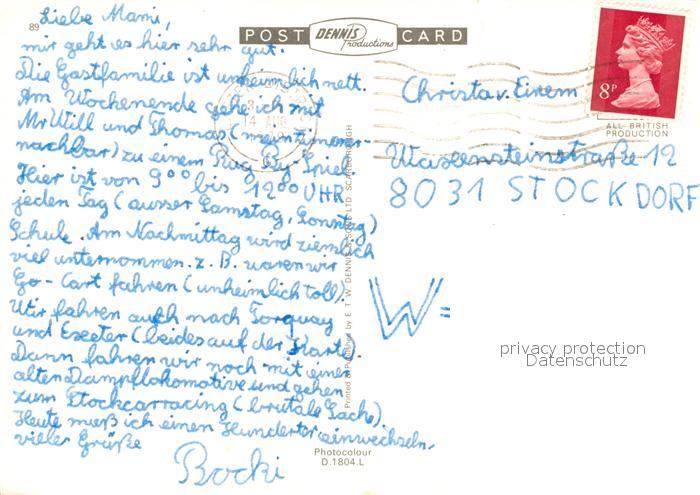 89
POST DENNIS Productions CARD
Liebe Mami,
mir geht es hier sehr gut.
Die Gastfamilie ist unheimlich nett.
Am Wochenende gehe ich mit
Mr Will und Thomas (mein Zimmer-
nachbar) zu einem Rug By Spiel.
Hier ist von 9⁰⁰ bis 12⁰⁰ UHR
jeden Tag (ausser Samstag, Sonntag)
Schule. Am Nachmittag wird ziemlich
viel unternommen. z. B. waren wir
Go-Cart fahren (unheimlich toll).
Wir fahren auch nach Torquay
und Exeter (beides auf der Kart).
Dann fahren wir noch mit einer
alten Dampflokomotive und gehen
zum Stockcarracing (brutale Sache).
Heute muß ich einen Hunderter einwechseln.
viele Grüße
Bocki
Printed & Published by E. T. W. DENNIS & SONS LTD SCARBOROUGH
Photocolour
D.1804.L
8P
ALL BRITISH
PRODUCTION
4 AUG
Christa v. Einem
Straße 12
8031 STOCKDORF
W=
privacy protection
Datenschutz